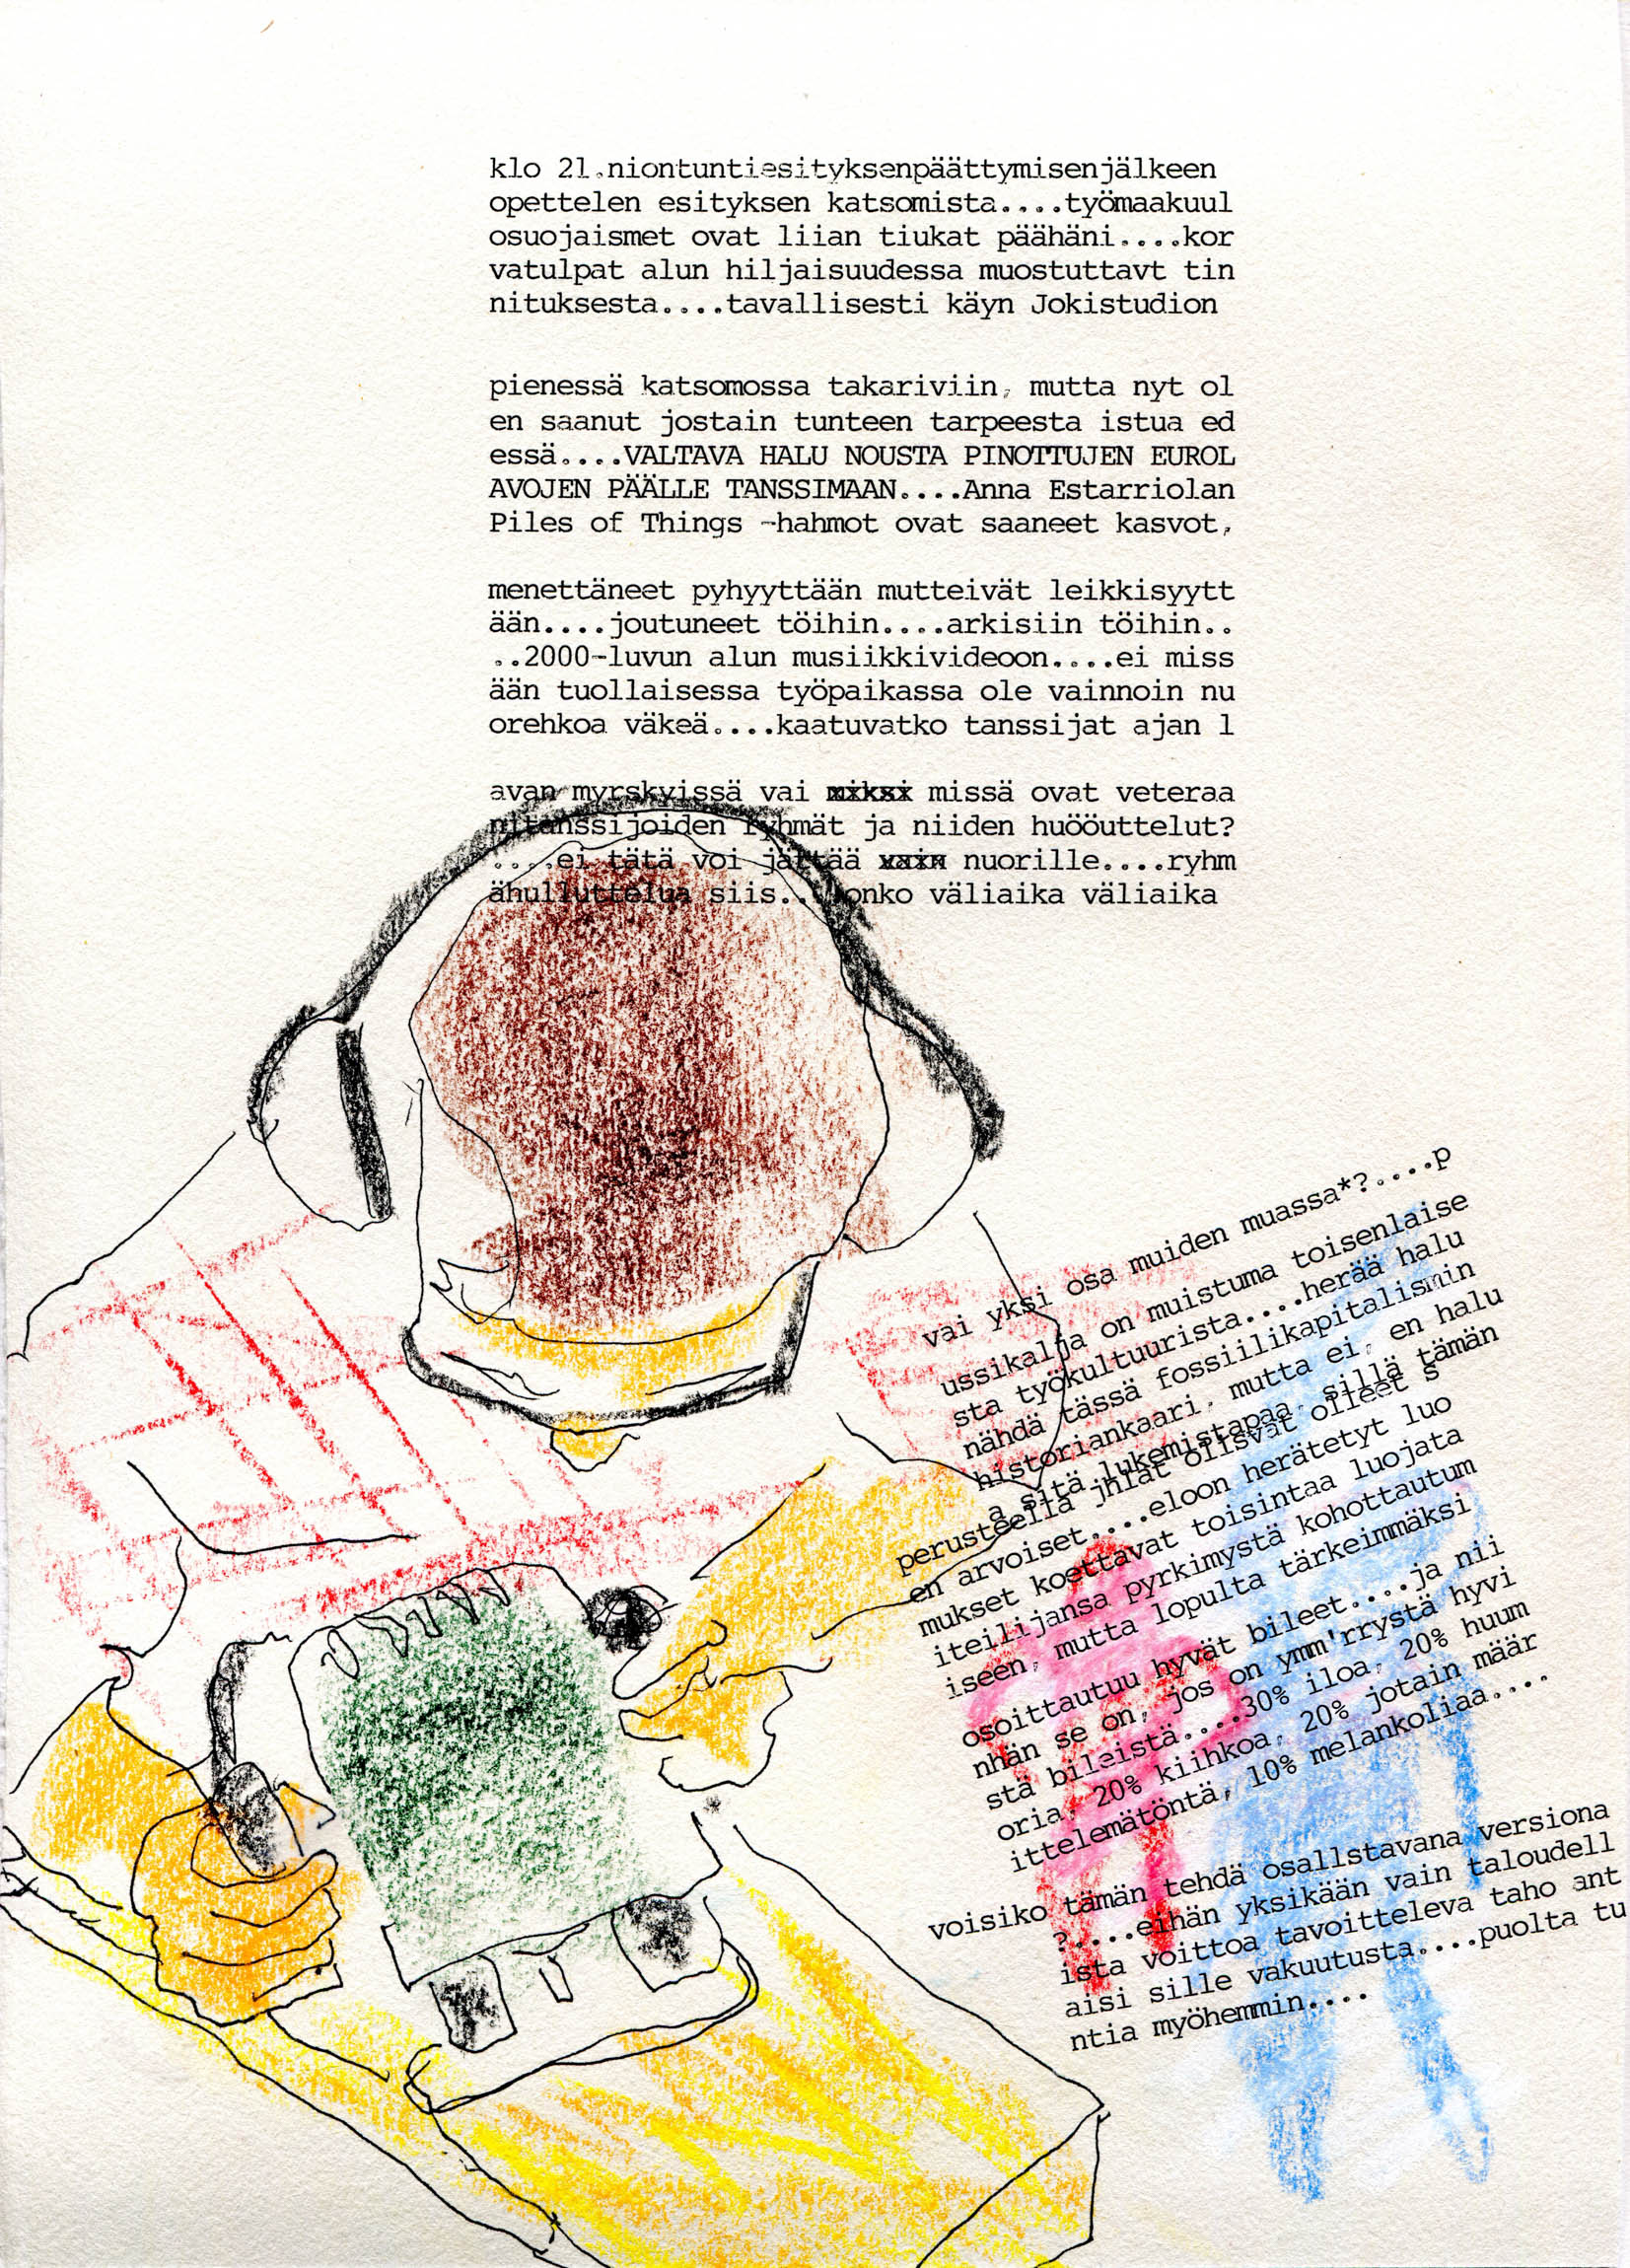 klo 21.niontuntiesityksenpäättymisenjälkeen
opettelen esityksen katsomista....työmaakuul
osuojaismet ovat liian tiukat päähäni....kor
vatulpat alun hiljaisuudessa muostuttavt tin
nituksesta....tavallisesti käyn Jokistudion
pienessä katsomossa takariviin, mutta nyt ol
en saanut jostain tunteen tarpeesta istua ed
essä....VALTAVA HALU NOUSTA PINOTTUJEN EUROL
AVOJEN PÄÄLLE TANSSIMAAN....Anna Estarriolan
Piles of Things -hahmot ovat saaneet kasvot,
menettäneet pyhyyttään mutteivät leikkisyytt
ään....joutuneet töihin....arkisiin töihin..
..2000-luvun alun musiikkivideoon....ei miss
ään tuollaisessa työpaikassa ole vainnoin nu
orehkoa väkeä....kaatuvatko tanssijat ajan l
avan myrskyissä vai miksi missä ovat veteraa
nitanssijoiden ryhmät ja niiden huööuttelut?
....ei tätä voi jättää vain nuorille....ryhm
ähulluttelua siis....onko väliaika väliaika
vai yksi osa muiden muassa*?....p
ussikalja on muistuma toisenlaise
sta työkultuurista....herää halu
nähdä tässä fossiilikapitalismin
historiankaari, mutta ei, en halu
a sitä lukemistapaa, sillä tämän
perusteella jhlat olisvat olleet s
en arvoiset....eloon herätetyt luo
mukset koettavat toisintaa luojata
iteilijansa pyrkimystä kohottautum
iseen, mutta lopulta tärkeimmäksi
osoittautuu hyvät bileet....ja nii
nhän se on, jos on ymm'rrystä hyvi
stä bileistä....30% iloa, 20% huum
oria, 20% kiihkoa, 20% jotain määr
ittelemätöntä, 10% melankoliaa....
voisiko tämän tehdä osallstavana versiona
?....eihän yksikään vain taloudell
ista voittoa tavoitteleva taho ant
aisi sille vakuutusta....puolta tu
ntia myöhemmin....